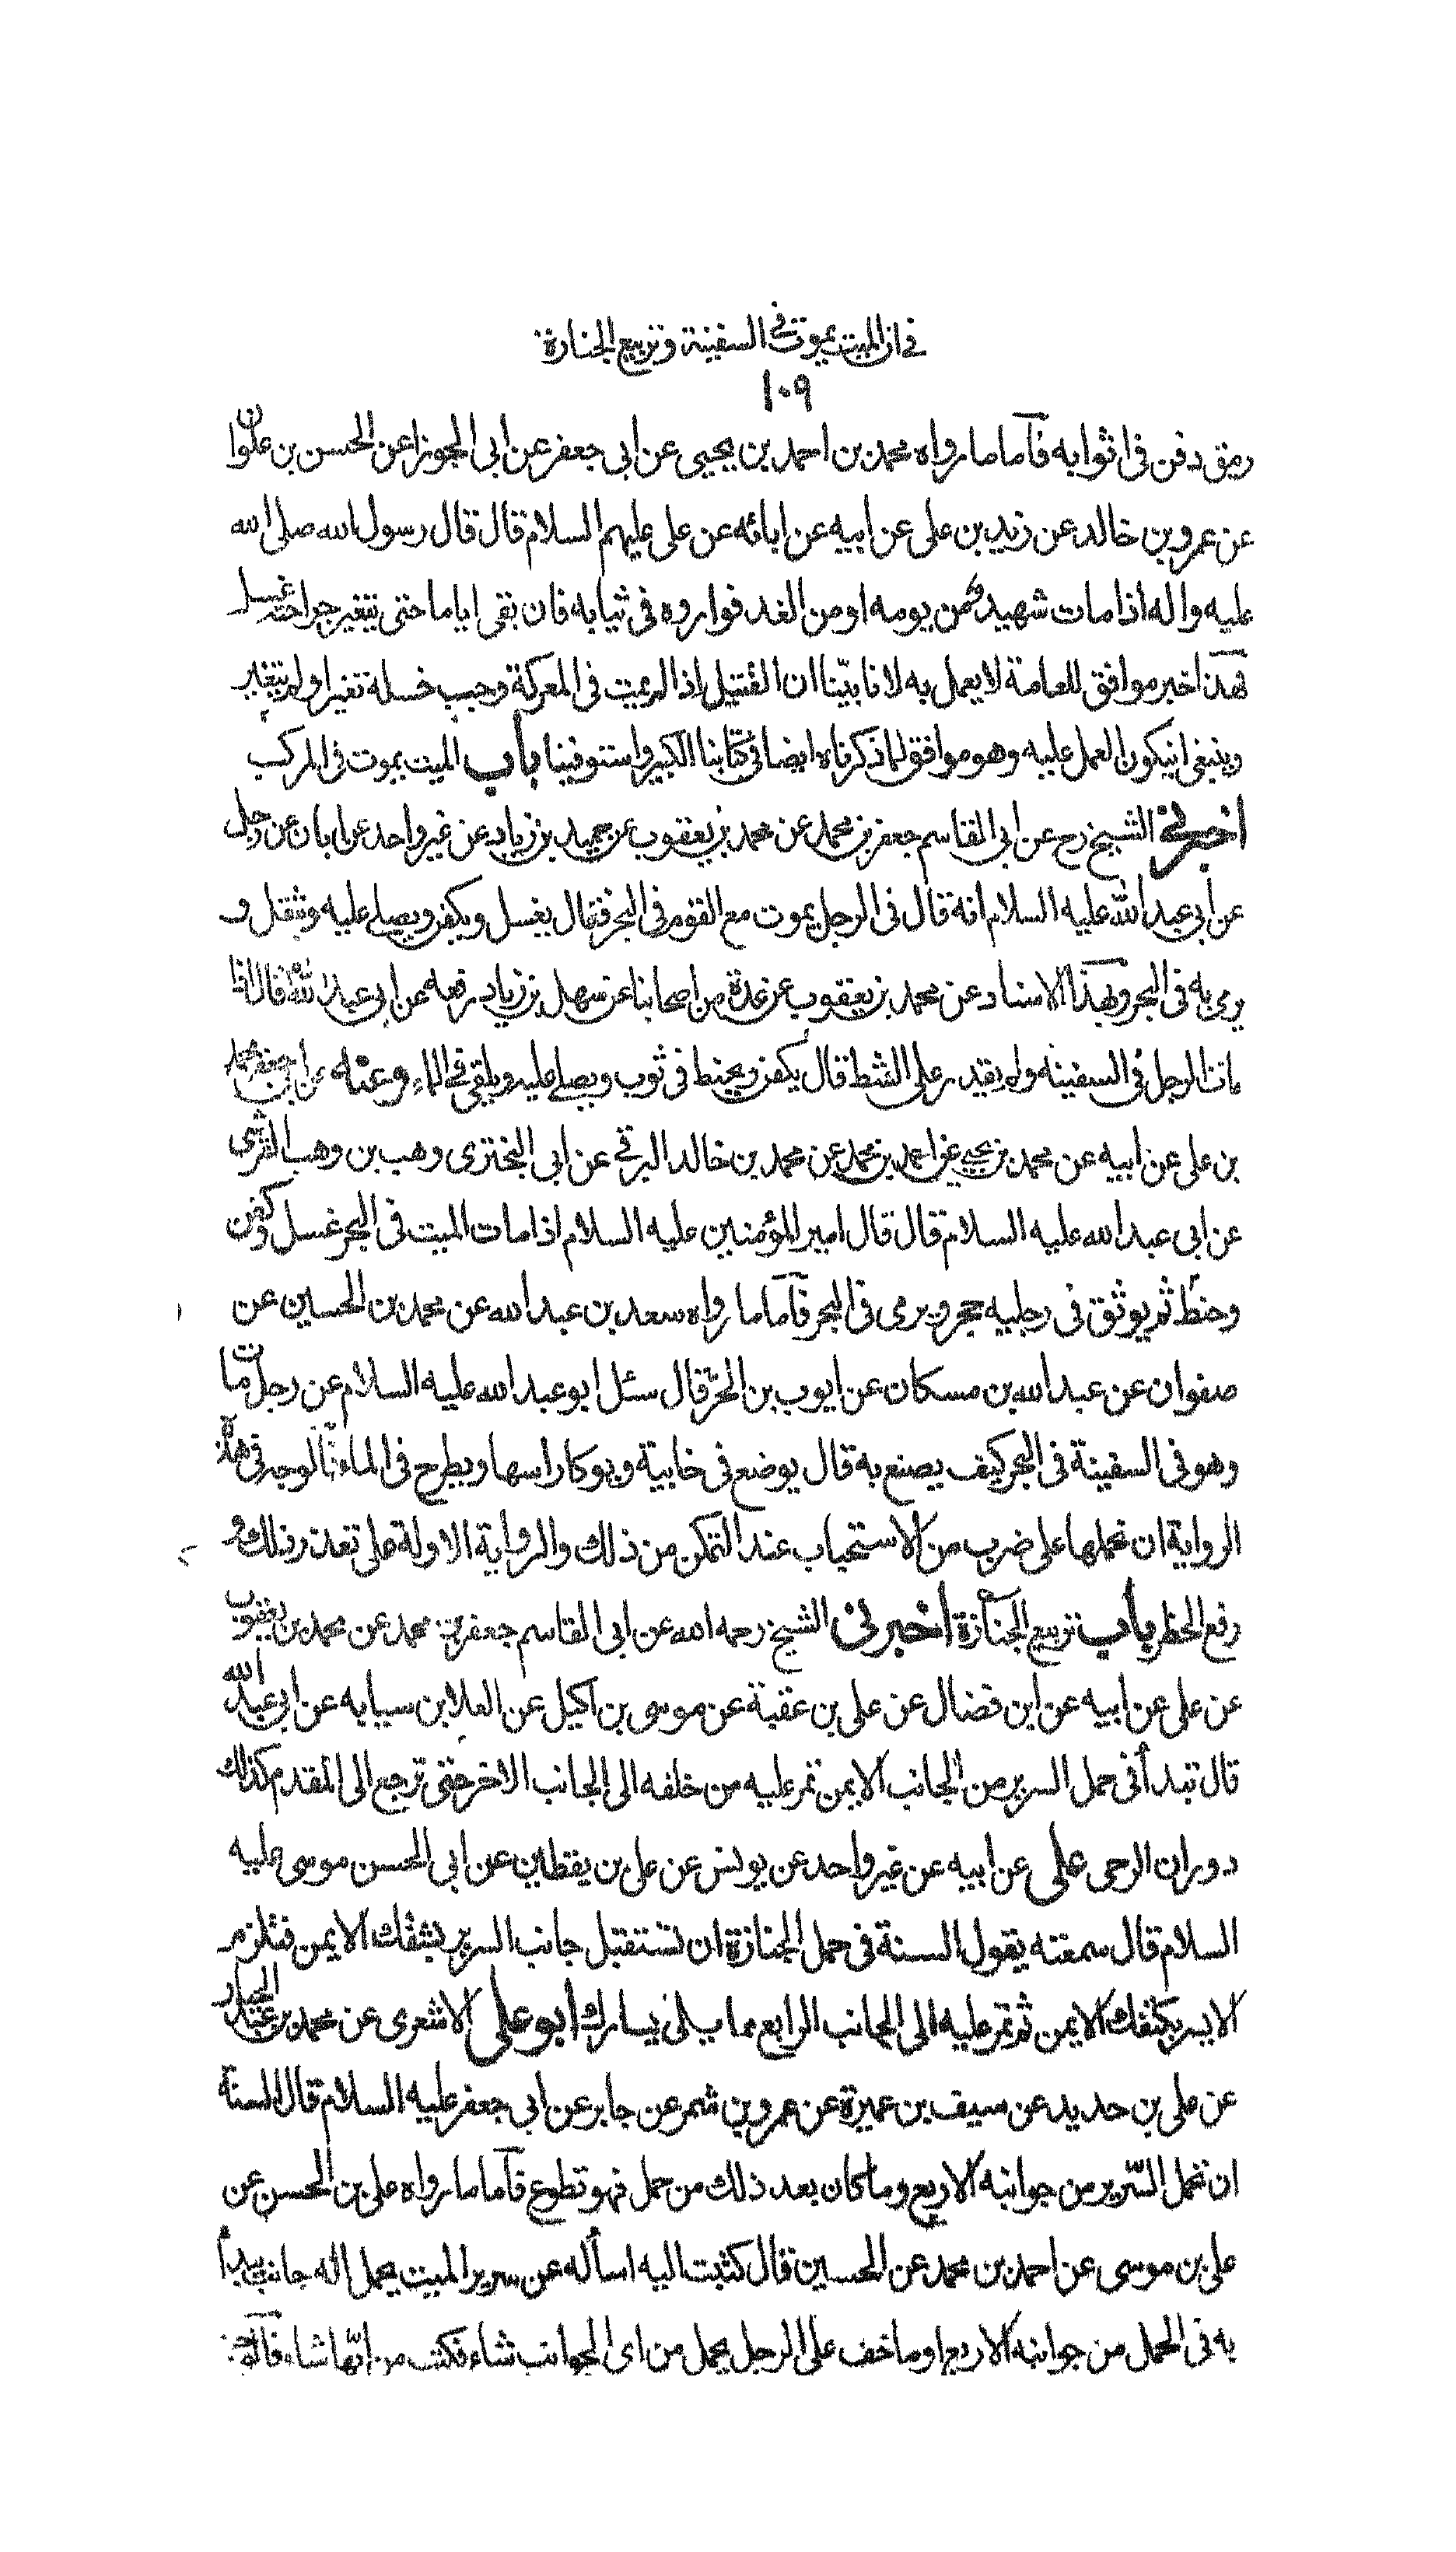 فى ان الميت يموت فى السفينة وتربيع الجنازة
١٠٩
رمق دفن فى اثوابه فاما ما رواه محمد بن احمد بن يحيى عن ابى جعفر عن ابى الجوزا عن الحسن بن علوان
عن عمرو بن خالد عن زيد بن على عن ابيه عن ابائه عن على عليهم السلام قال قال رسول الله صلى الله
عليه واله اذا مات شهيد من يومه او من الغد فواروه فى ثيابه فان بقى اياما حتى تتغير جراحته غسل
هذا خبر موافق للعامة لا يعمل به لانا بيّنا ان القتيل اذا لم يمت فى المعركة وجب غسله تغير او لم يتغير
وينبغى انيكون العمل عليه وهو موافق لما ذكرناه ايضا فى كتابنا الكبير واستوفينا باب الميت يموت فى المركب
اخبرنى الشيخ رح عن ابى القاسم جعفر بن محمد عن محمد بن يعقوب عن حميد بن زياد عن غير واحد عن ابان عن رجل
عن ابى عبد الله عليه السلام انه قال فى الرجل يموت مع القوم فى البحر فقال يغسل ويكفن ويصلى عليه ويثقل و
يرمى به فى البحر وبهذا الاسناد عن محمد بن يعقوب عن عدة من اصحابنا عن سهل بن زياد رفعه عن ابى عبد الله قال اذا
مات الرجل فى السفينه ولم يقدر على الشط قال يكفن ويحنط فى ثوب ويصلى عليه ويلقى فى الماء وعنه عن
بن على عن ابيه عن محمد بن يحيى عن احمد بن محمد عن محمد بن خالد البرقى عن ابى البخترى وهب بن وهب القرشى
عن ابى عبد الله عليه السلام قال قال امير المؤمنين عليه السلام اذا مات الميت فى البحر غسل وكفن
وحنط ثم يوثق فى رجليه حجر ويرمى فى البحر فاما ما رواه سعد بن عبد الله عن محمد بن الحسين عن
صفوان عن عبد الله بن مسكان عن ايوب بن الحرّ قال سئل ابو عبد الله عليه السلام عن رجل مات
وهو فى السفينة فى البحر كيف يصنع به قال يوضع فى خابية ويوكا راسها ويطرح فى الماء فالوجه فى هذه
الرواية ان نحملها على ضرب من الاستحباب عند التمكن من ذلك والرواية الاولة على تعذر ذلك و
رفع الحظر باب تربيع الجنازة اخبرنى الشيخ رحمه الله عن ابى القاسم جعفر بن محمد عن محمد بن يعقوب
عن على عن ابيه عن ابن فضال عن على بن عقبة عن موسى بن اكيل عن العلا بن سيابه عن ابى عبد الله
قال تبدأ فى حمل السرير من الجانب الايمن ثم تمر عليه من خلفه الى الجانب الاخر حتى ترجع الى المقدم كذلك
دوران الرحى على عن ابيه عن غير واحد عن يونس عن على بن يقطين عن ابى الحسن موسى عليه
السلام قال سمعته يقول السنة فى حمل الجنازة ان تستقبل جانب السرير بشقك الايمن فتلزم
الايسر بكتفك الايمن ثم تمر عليه الى الجانب الرابع مما يلى يسارك ابو على الاشعرى عن محمد بن عبد الجبار
عن على بن حديد عن سيف بن عميرة عن عمرو بن شمر عن جابر عن ابى جعفر عليه السلام قال السنة
ان تحمل السّرير من جوانبه الاربع وما كان بعد ذلك من حمل فهو تطوع فاما ما رواه على بن الحسن عن
على بن موسى عن احمد بن محمد عن الحسين قال كتبت اليه اسأله عن سرير الميت يحمل اله جانب يبدأ
به فى الحمل من جوانبه الاربع او ما خف على الرجل يحمل من اى الجوانب شاء فكتب من ايّها شاء